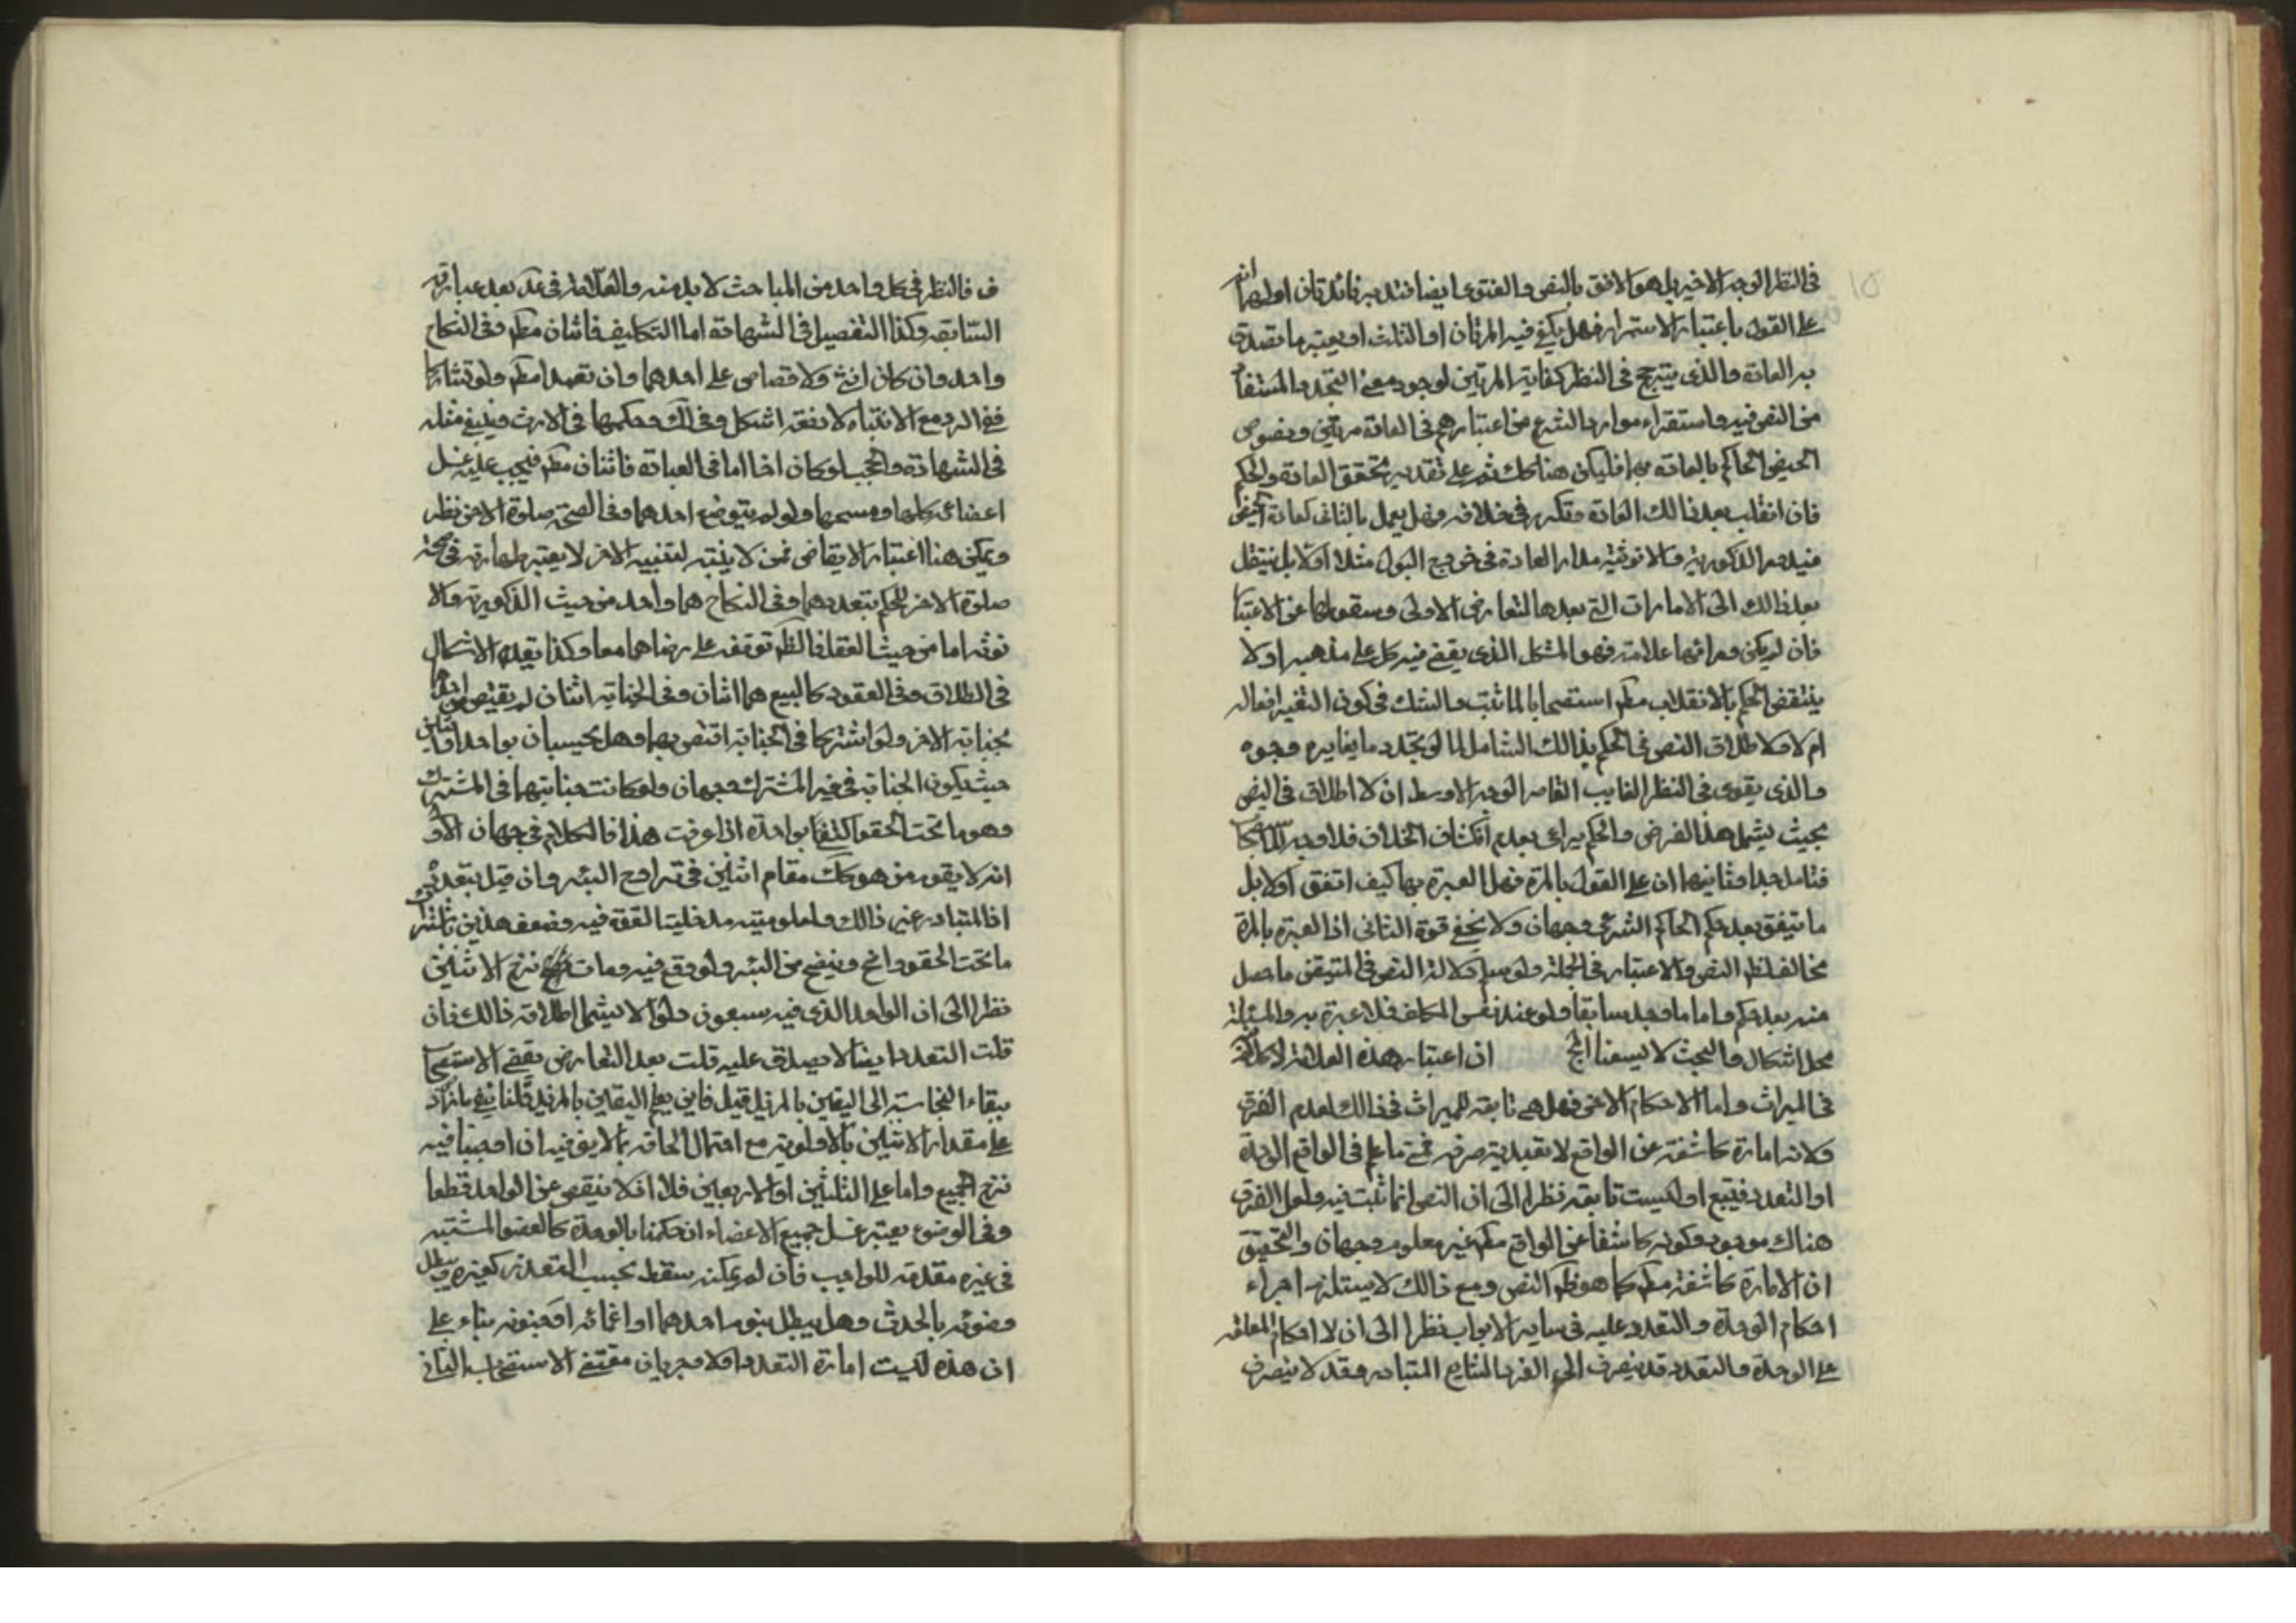 في النظر الوجه الاخير بل هو الاوفق بالنص والفتوى ايضا فتدبر فائدتان اوليهما انه
على القول باعتبار الاستمرار فهل يكفي فيه المرتان او الثلث او يعتبر ما تصدق
به العادة والذي يترجح في النظر كفاية المرتين لوجود معنى التجدد والمستفاد
من النص فيه واستقراء موارد الشرع من اعتبارهم في العادة مرتين ونصوص
الحيض الحاكم بالعادة بهما فليكن هنا كك ثم على تقدير تحقق العادة والحكم
فان انقلب بعد ذالك العادة وتكرر في خلافه فهل يعمل بالثاني كعادة الحيض
فيدور الذكورية والانوثية مدار العادة في خروج البول مثلا اولا بل ينتقل
بعد ذالك الى الامارات التي بعدها لتعارض الاولى وسقوطها عن الاعتبار
فان لم يكن ورائها علامة فهو المشكل الذي يقضي فيه كل على مذهبه او لا
ينتقض الحكم بالانقلاب مطم استصحابا لما ثبت والشك في كون التغير افعاله
ام لا ولاطلاق النص في الحكم بذالك الشامل لما لو تجدد ما يغايره وجوه
والذي يقوى في النظر الغايب القاصر الوجه الاوسط ان لا اطلاق في النص
بحيث يشمل هذا الفرض والحكم يراعى بعدم انكشاف الخلاف فلا وجه للاستصحاب
فتامل جدا وثانيهما ان على القول بالمرة فهل العبرة بها كيف اتفق اولا بل
ما يتفق بعد حكم الحاكم الشرعي وجهان ولا يخفى قوة الثاني اذ العبرة بالمرة
مخالف لظم النص والاعتبار في الجملة ولو سلم دلالة النص في المتيقن ما حصل
منه بعد حكم واما ما وجد سابقا ولو عند نفس المكلف فلا عبرة به والمسئلة
محل اشكال والبحث لا يسعنا الخ ان اعتبار هذه العلامة لا كلام
في الميراث واما الاحكام الاخر فهل هي تابعة للميراث في ذالك لعدم الفرق
ولانه امارة كاشفة عن الواقع لا تعبدية صرفه فمتى ما علم في الواقع الوحدة
او التعدد فيتبع او ليست تابعة نظرا الى ان النص انما ثبت فيه ولعل الفرق
هناك موجود وكونه كاشفا عن الواقع مطم غير معلوم وجهان والتحقيق
ان الامارة كاشفة مطم كما هو ظم النص ومع ذالك لا يستلزم اجراء
احكام الوحدة والتعدد عليه في ساير الابواب نظرا الى ان لا احكام المعلقة
على الوحدة والتعدد قد ينصرف الى الفرد الشايع المتبادر وقد لا ينصرف
ف فالنظر في كل واحد من المباحث لا بد منه والعلامة في عد بعد عبارته
السابقه وكذا التفصيل في الشهادة اما التكاليف فاثنان مطم وفي النكاح
واحد وان كان انثى ولا قصاص على احدهما وان تعمد مطم ولو تشاركا
ففي الرد مع الانتباه لا دفعة اشكل وفي لك وحكمها في الارث وينبغي مثله
في الشهادة والحجب لو كان اخا اما في العبادة فاثنان مطم فيجب عليه غسل
اعضائه كلها ومسحها ولو لم يتوضع احدهما وفي الصحة صلوة الاخر نظر
ويمكن هنا اعتبار الايقاض فمن لا ينتبه لتنبيه الاخر لا يعتبر طهارته في صحة
صلوة الاخر للحكم بتعددهما وفي النكاح هما واحد من حيث الذكورية والا
نوثة اما من حيث العقد فالظم توقفه على رضاهما معا وكذا يقع الاشكال
في الطلاق وفي العقود كالبيع هما اثنان وفي الجناية اثنان لم يقتص من احدهما
بجناية الاخر ولو اشتركا في الجناية اقتص بهما وهل يحسبان بواحد او اثنين
حيث يكون الجناية في غير المشترك وجهان ولو كانت جنايتهما في المشترك
وهو ما تحت الحقو اكتفى بواحدة اذا عرفت هذا فالكلام في جهان الاو
انه لا يقوم من هو كك مقام اثنين في تراوح البئر وان قيل بتعدده
اذ المتبادر غير ذالك ولعلومية مدخلية القوة فيه وضعف هذين باشتراك
ما تحت الحقو واضح وينضح من البئر ولو وقع فيه ومات نزح الاثنين
نظرا الى ان الواحد الذي فيه سبعون دلوا لا يشمل اطلاقه ذالك فان
قلت التعدد ايضا لا يصدق عليه قلت بعد التعارض يقضى الاستصحاب
ببقاء النجاسة الى اليقين بالمزيل قيل فاين يعلم اليقين بالمزيل قلنا ينفى ما زاد
على مقدار الاثنين بالاولوية مع احتمال الحاقه بما لا نص فيه ان اوجبنا فيه
نزح الجميع واما على الثلثين او الاربعين فلا اذ لا ينقص عن الواحد قطعا
وفي الوضوء يعتبر غسل جميع الاعضاء ان حكمنا بالوحدة كالعضو المشتبه
في غيره مقدمة للواجب فان لم يمكن سقط بحسب التعذر كغيره ويبطل
وضوئه بالحدث وهل يبطل بنوم احدهما او اغمائه او جنونه بناء على
ان هذه ليست امارة التعدد اولا وجريان مقتضى الاستصحاب الثاني